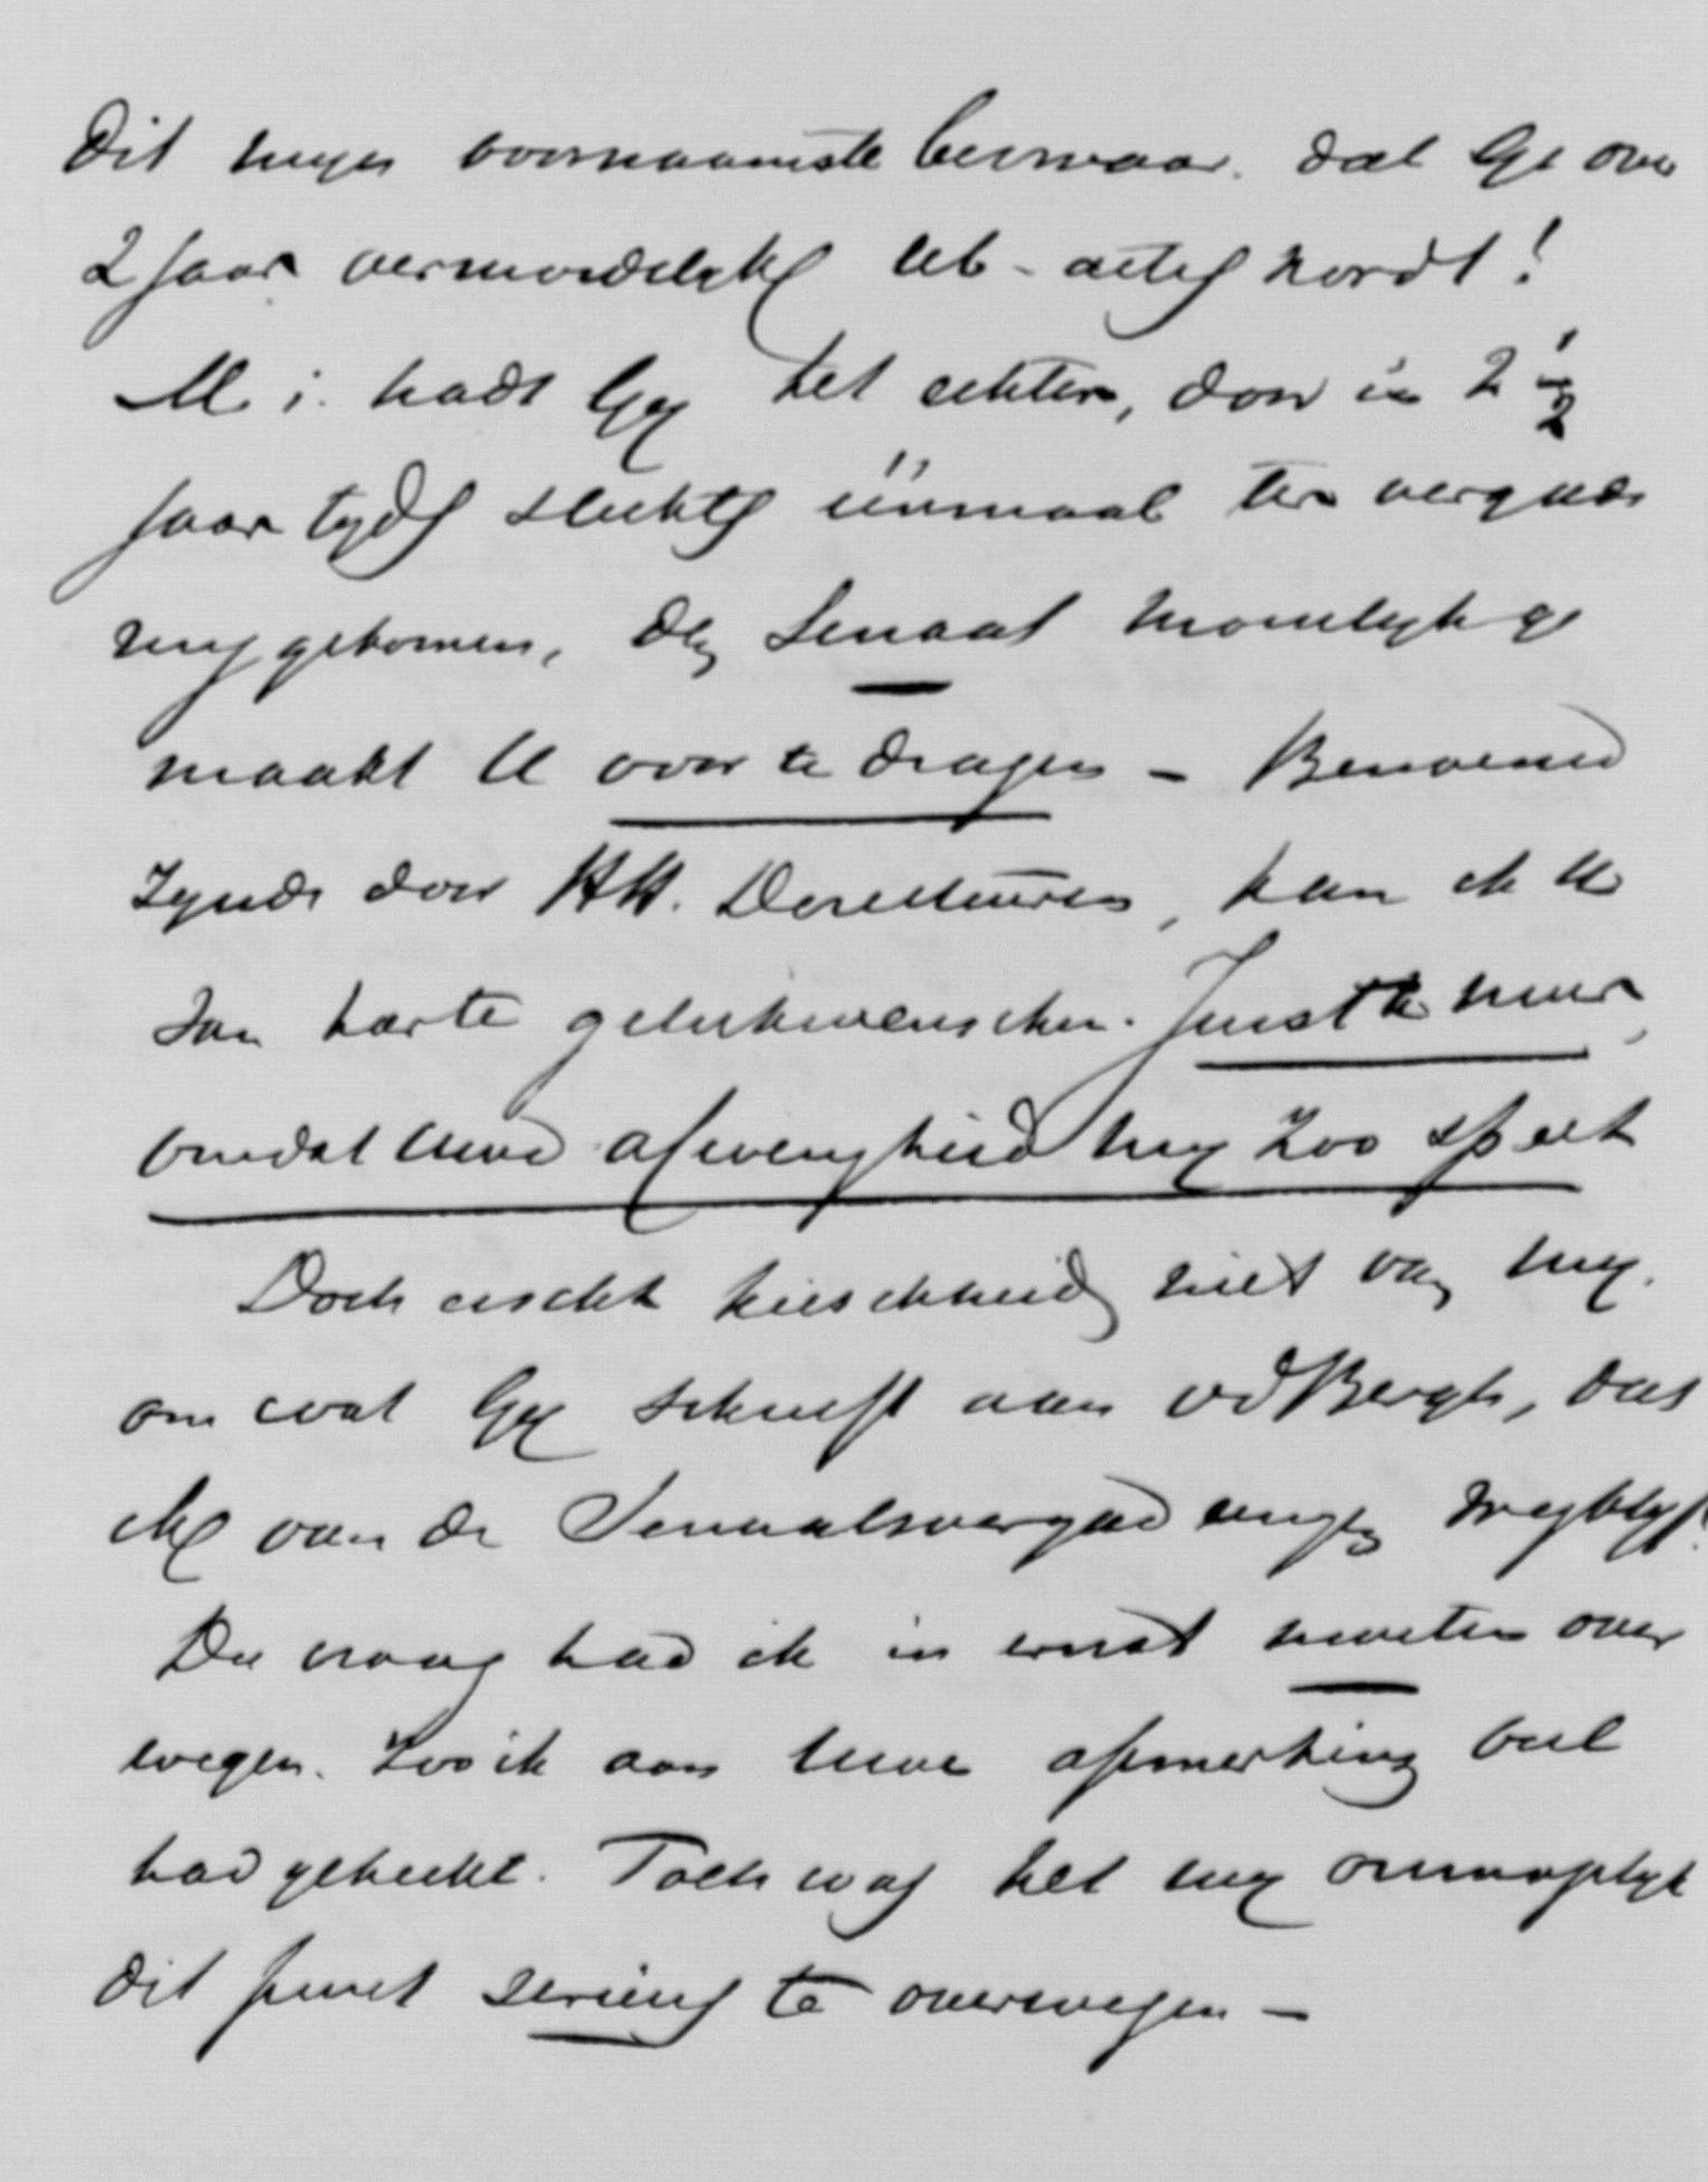 Dit mijn voornaamste bezwaar. dat Gij over
2 jaar vermoedelijk lid-actif wordt!
M. i. hadt Gij het echter, door in 2 1/2
jaar tijds slechts éénmaal ter vergade
ring gekomen, den Senaat moeielijk ge
maakt U over te dragen – Benoemd
zijnde door HH. Directeuren, kan ik U
van harte gelukwenschen. Juist te meer,
omdat Uwe afwezigheid mij zoo speet
Doch eischt kieschheid niet van mij.
om wat Gij schreeft aan vd Bergh, dat
ik van de Senaatsvergaderingen wegblijf.
Die vraag had ik in ernst moeten over
wegen. Zoo ik aan Uwe opmerking veel
had gehecht. Toch was het mij onmogelijk
dit punt serieus te overwegen –